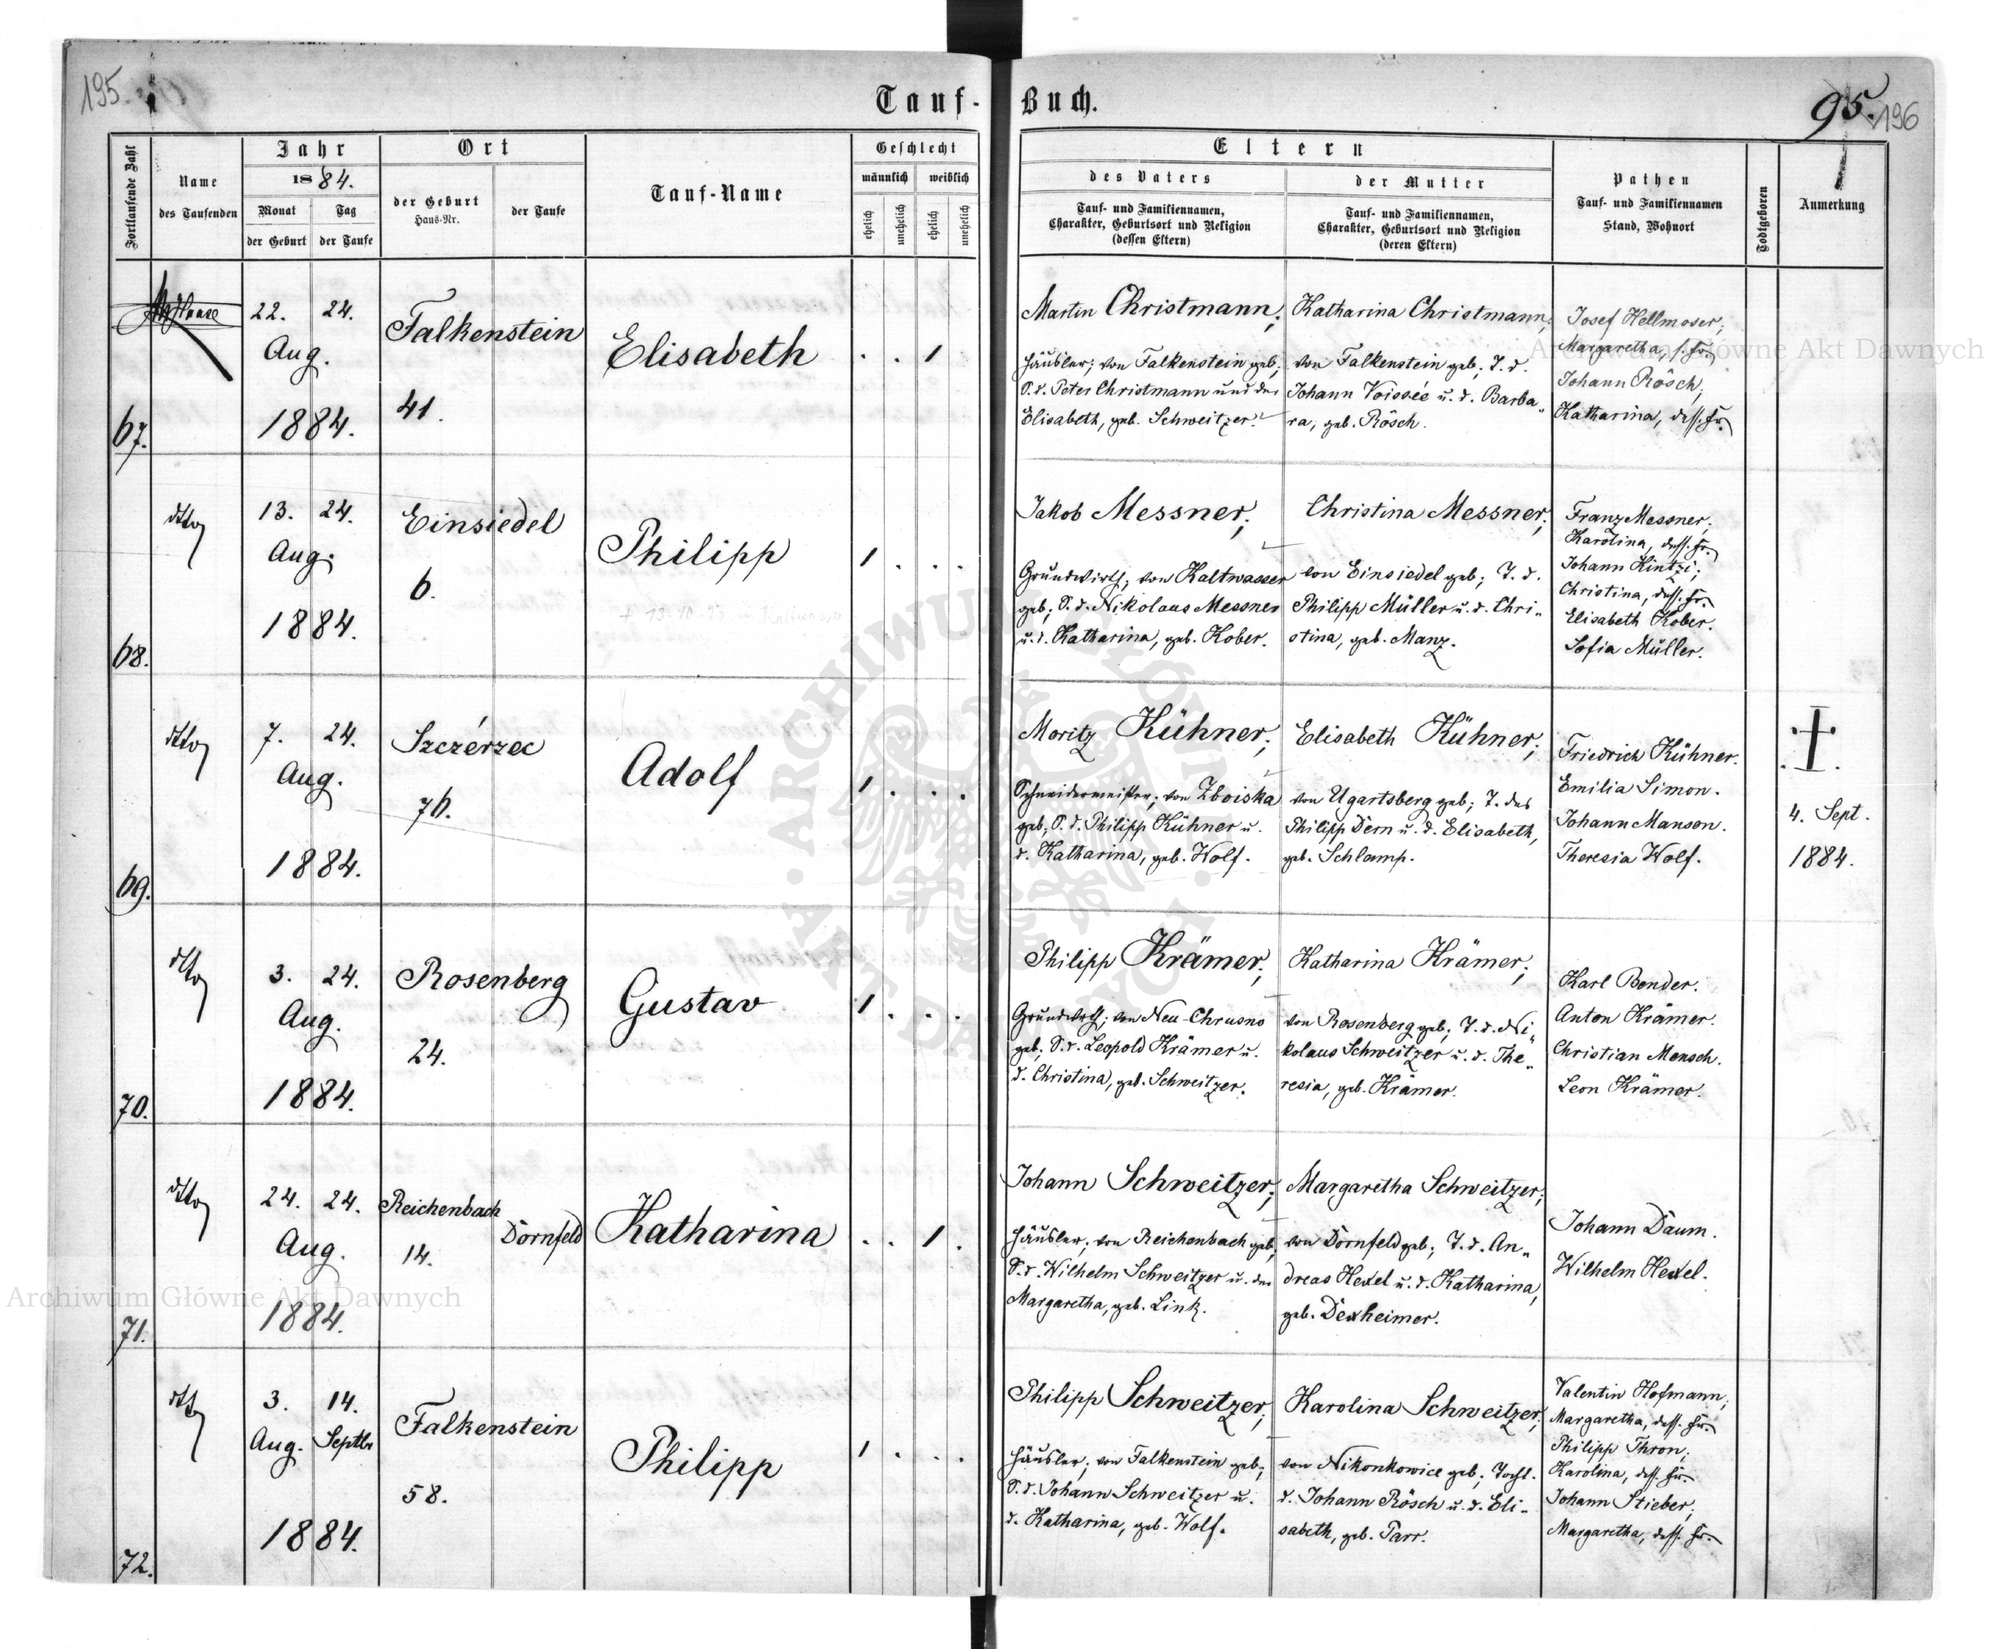 195.
Tauf-Buch.
95.
196
Fortlaufende Zahl
Name
des Taufenden
Jahr
1884.
Monat
Tag
der Geburt
der Taufe
Ort
der Geburt
Haus-Nr.
der Taufe
Tauf-Name
Geschlecht
männlich
weiblich
ehelich
unehelich
ehelich
unehelich
Eltern
des Vaters
Tauf- und Familiennamen,
Charakter, Geburtsort und Religion
(dessen Eltern)
der Mutter
Tauf- und Familiennamen,
Charakter, Geburtsort und Religion
(deren Eltern)
Pathen
Tauf- und Familiennamen
Stand, Wohnort
Todtgeboren
Anmerkung
67.
22. 24.
Aug.
1884.
Falkenstein
41.
Elisabeth
. . 1
Martin Christmann;
Häusler; von Falkenstein geb;
S. d. Peter Christmann und der
Elisabeth, geb. Schweitzer.
Katharina Christmann;
von Falkenstein geb; T. d.
Johann Voissée u. d. Barba-
ra, geb. Rösch.
Josef Hellmoser;
Margaretha, s. Fr.
Johann Rösch;
Katharina, dess. Fr.
68.
dtto
13. 24.
Aug.
1884.
Einsiedel
6.
Philipp
1 . . .
Jakob Messner;
Grundwirth; von Kaltwasser
geb; S. d. Nikolaus Messner
u. d. Katharina, geb. Kober.
Christina Messner;
von Einsiedel geb; T. d.
Philipp Müller u. d. Chri-
stina, geb. Manz.
Franz Messner.
Karolina, dess. Fr.
Johann Kintzi;
Christina, dess. Fr.
Elisabeth Kober.
Sofia Müller.
69.
dtto
7. 24.
Aug.
1884.
Szczérzec
76.
Adolf
1 . . .
Moritz Kühner;
Schneidermeister; von Zboiska
geb; S. d. Philipp Kühner u.
d. Katharina, geb. Wolf.
Elisabeth Kühner;
von Ugartsberg geb; T. des
Philipp Dern u. d. Elisabeth,
geb. Schlamp.
Friedrich Kühner.
Emilia Simon.
Johann Manson.
Theresia Wolf.
4. Sept.
1884.
70.
dtto
3. 24.
Aug.
1884.
Rosenberg
24.
Gustav
1 . . .
Philipp Krämer;
Grundwirth; von Neu-Chrusno
geb; S. d. Leopold Krämer u.
d. Christina, geb. Schweitzer.
Katharina Krämer;
von Rosenberg geb; T. d. Ni-
kolaus Schweitzer u. d. The-
resia, geb. Krämer.
Karl Bender.
Anton Krämer.
Christian Mensch.
Leon Krämer.
71.
dtto
24. 24.
Aug.
1884.
Reichenbach
14.
Dornfeld
Katharina
. . 1 .
Johann Schweitzer;
Häusler; von Reichenbach geb;
S. d. Wilhelm Schweitzer u. der
Margaretha, geb. Link.
Margaretha Schweitzer;
von Dornfeld geb; T. d. An-
dreas Hexel u. d. Katharina,
geb. Dexheimer.
Johann Daum.
Wilhelm Hexel.
72.
dtto
3. 14.
Aug. Septbr
1884.
Falkenstein
58.
Philipp
1 . . .
Philipp Schweitzer;
Häusler; von Falkenstein geb;
S. d. Johann Schweitzer u.
d. Katharina, geb. Wolf.
Karolina Schweitzer;
von Nikonkowice geb; Tocht.
d. Johann Rösch u. d. Eli-
sabeth, geb. Parr.
Valentin Hofmann;
Margaretha, dess. Fr.
Philipp Thron;
Karolina, dess. Fr.
Johann Stieber;
Margaretha, dess. Fr.
Archiwum Główne Akt Dawnych
Archiwum Główne Akt Dawnych